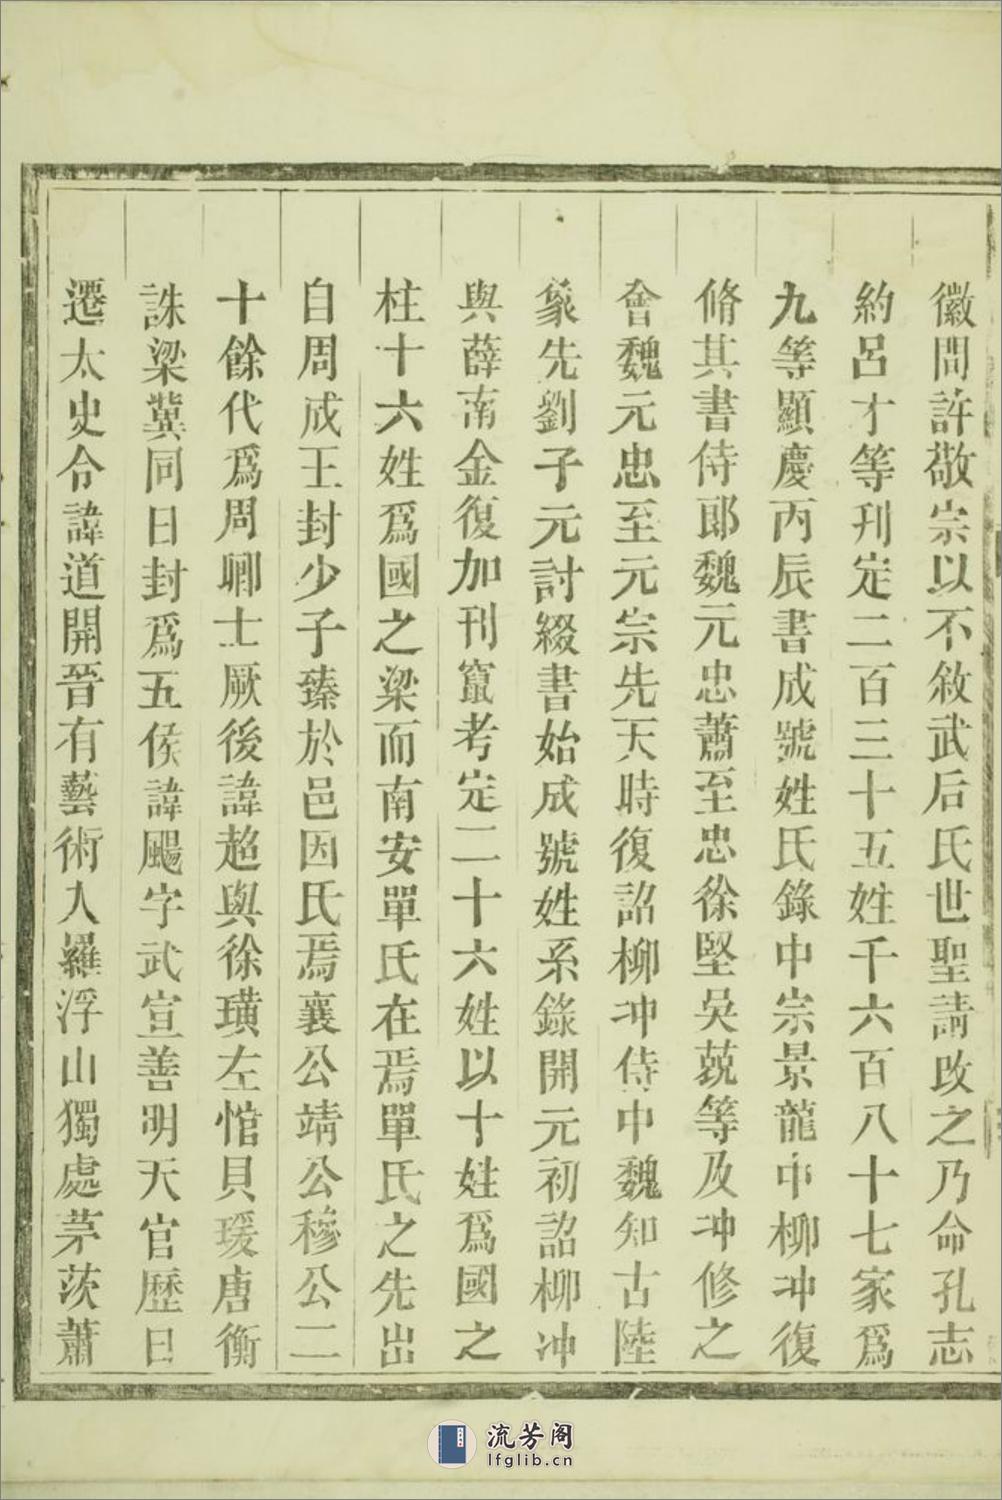 徽問許敬宗以不敘武后氏世聖請改之乃命孔志
約呂才等刊定二百三十五姓千六百八十七家爲
九等顯慶丙辰書成號姓氏錄中宗景龍中柳冲復
脩其書侍郎魏元忠蕭至忠徐堅吳兢等及冲修之
會魏元忠至元宗先天時復詔柳冲侍中魏知古陸
象先劉子元討綴書始成號姓系錄開元初詔柳冲
與薛南金復加刊竄考定二十六姓以十姓爲國之
柱十六姓爲國之梁而南安單氏在焉單氏之先出
自周成王封少子臻於邑因氏焉襄公靖公穆公二
十餘代爲周卿士厥後諱超與徐璜左悺貝瑗唐衡
誅梁冀同日封爲五侯諱颺字武宣善明天官歷日
遷太史令諱道開晉有藝術人羅浮山獨處茅茨蕭
流芳阁
lfglib.cn